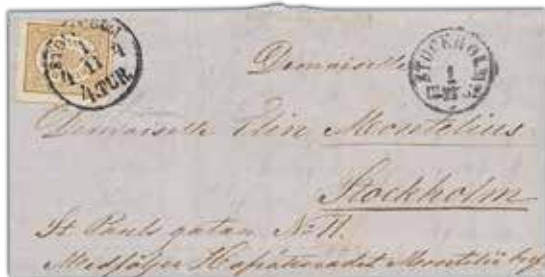 STOCKHOLM
1
11
4 TUR.
STOCKHOLM
1
11
Demoiselle
Demoiselle Elin Montelius
Stockholm
St Pauls gatan No 11.
Medföljer